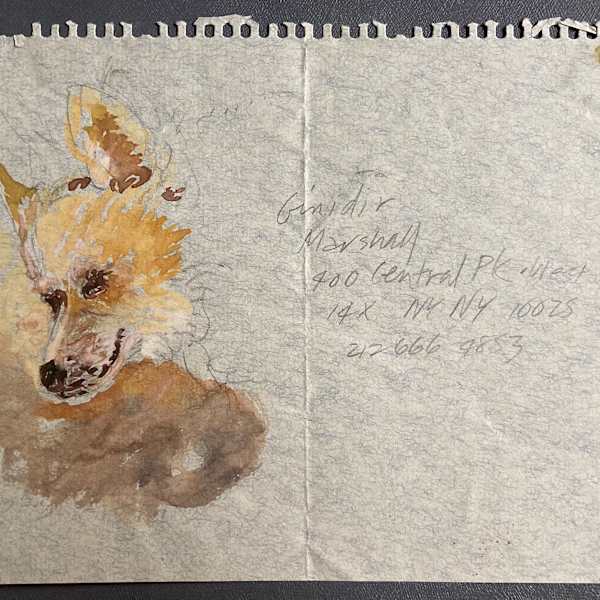 To
Ginidir
Marshall
400 Central Pk. West
14X NY NY 10025
212 666 4853